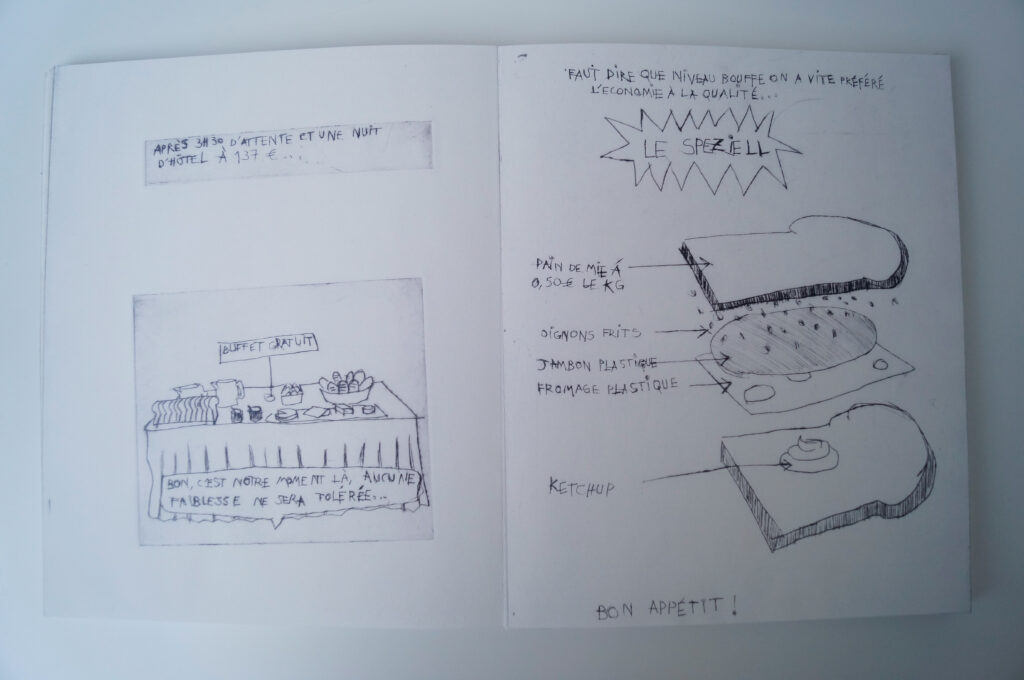 APRÈS 3H30 D'ATTENTE ET UNE NUIT
D'HÔTEL À 137 €...
BUFFET GRATUIT
BON, C'EST NOTRE MOMENT LÀ, AUCUNE
FAIBLESSE NE SERA TOLÉRÉE...
FAUT DIRE QUE NIVEAU BOUFFE ON A VITE PRÉFÉRÉ
L'ECONOMIE À LA QUALITÉ...
LE SPEZIELL
PAIN DE MIE À
0,50€ LE KG
OIGNONS FRITS
JAMBON PLASTIQUE
FROMAGE PLASTIQUE
KETCHUP
BON APPÉTIT !